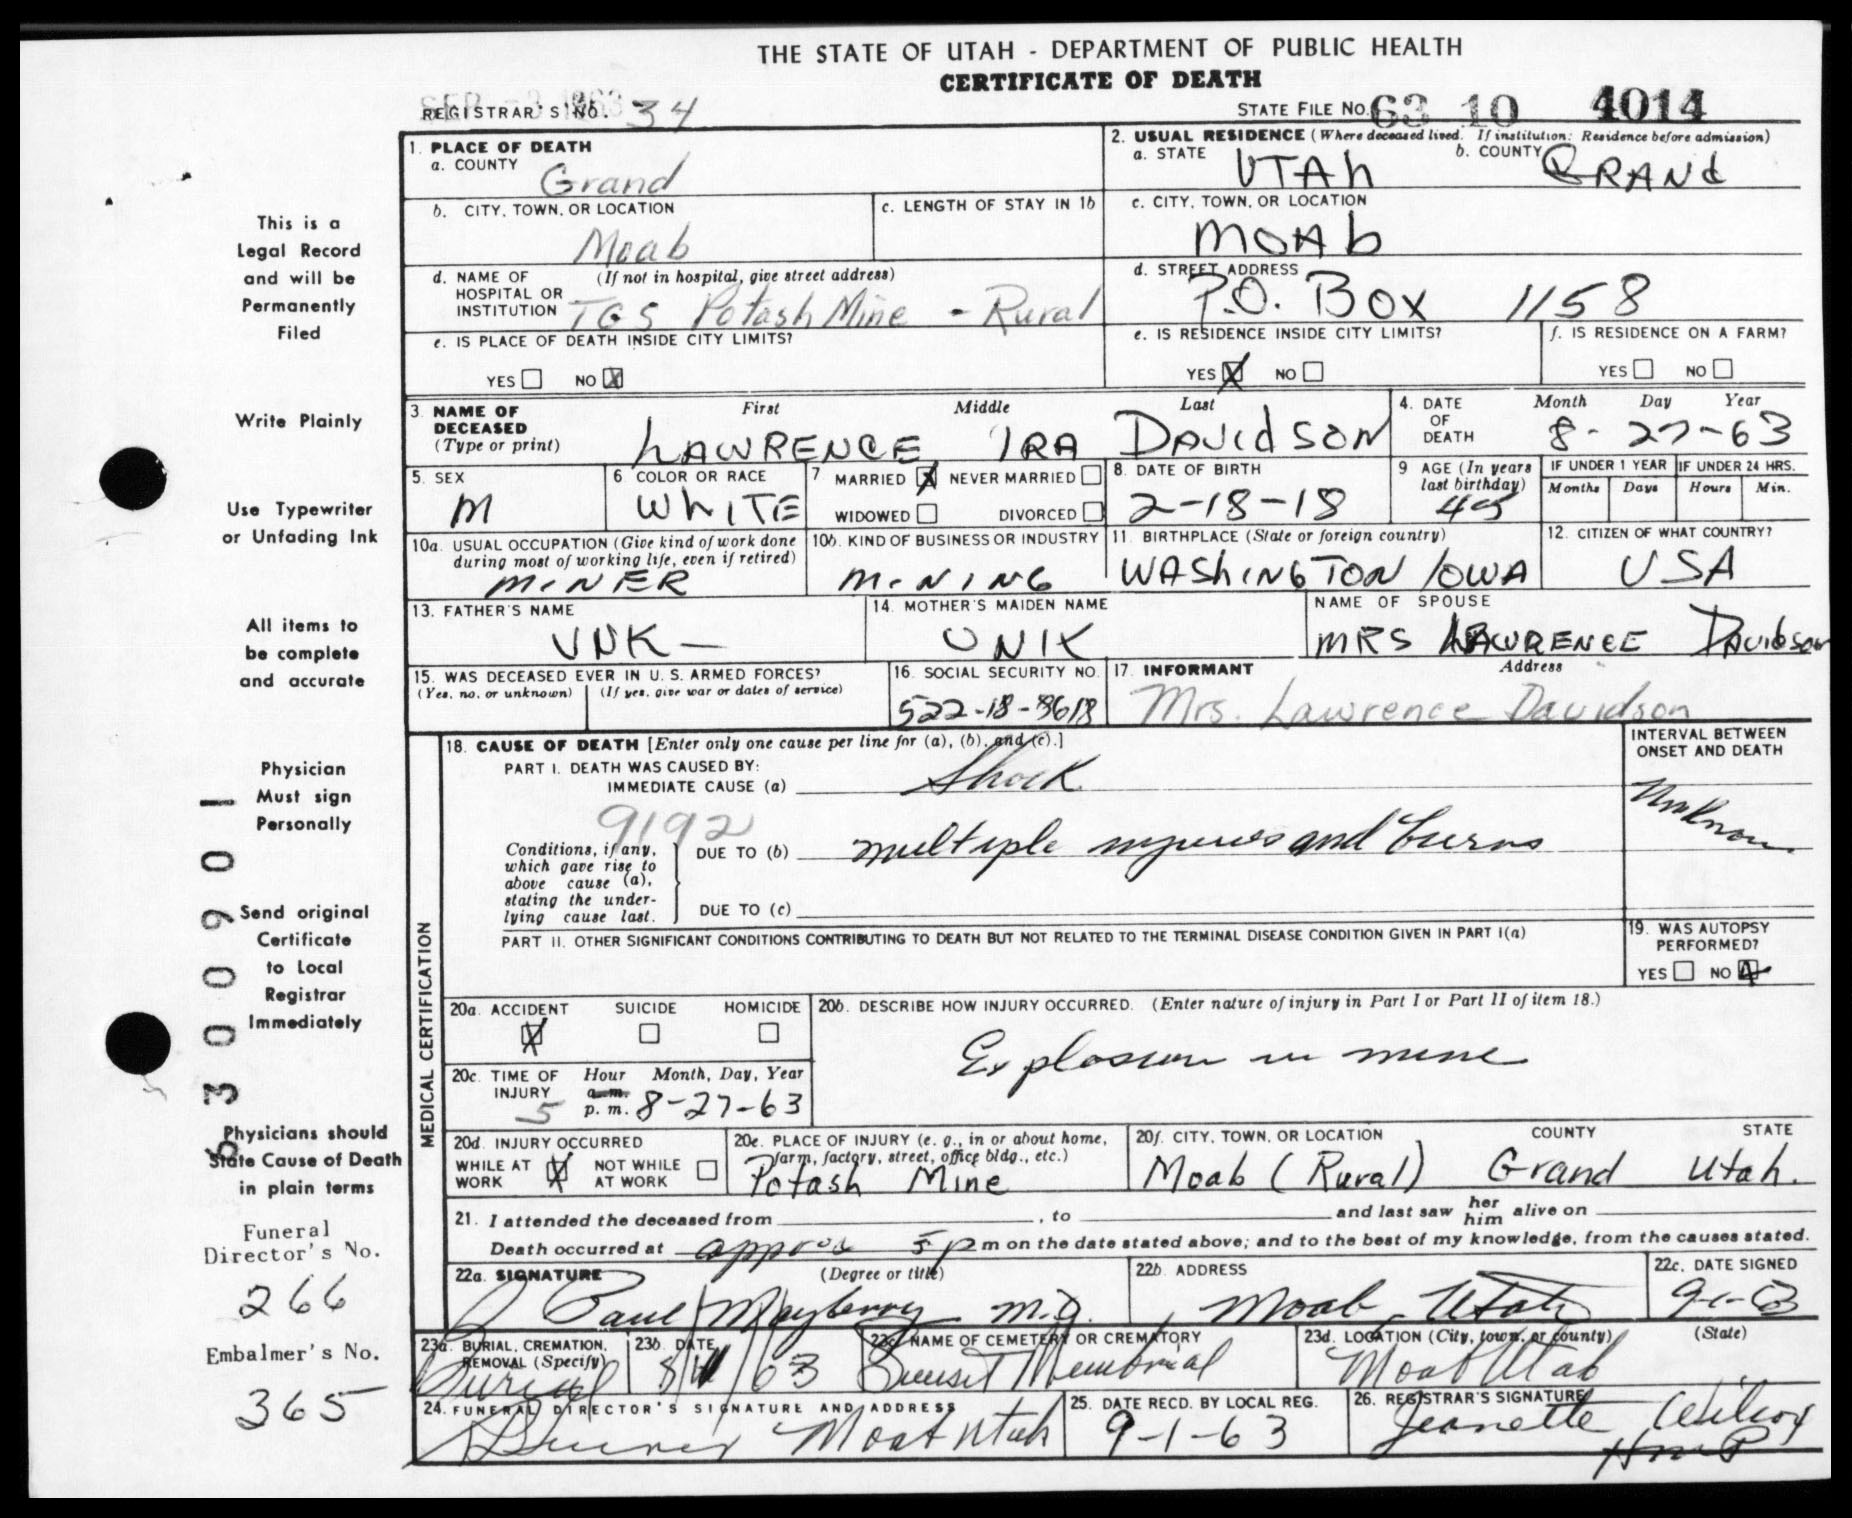 THE STATE OF UTAH - DEPARTMENT OF PUBLIC HEALTH
CERTIFICATE OF DEATH
REGISTRAR'S NO. 34
STATE FILE NO. 63 10 4014
1. PLACE OF DEATH
a. COUNTY Grand
2. USUAL RESIDENCE (Where deceased lived. If institution: Residence before admission)
a. STATE UTAh b. COUNTY GRANd
b. CITY, TOWN, OR LOCATION Moab
c. LENGTH OF STAY IN 1b
c. CITY, TOWN, OR LOCATION MOAb
d. NAME OF HOSPITAL OR INSTITUTION (If not in hospital, give street address) TGS Potash Mine - Rural
d. STREET ADDRESS P.O. BOX 1158
e. IS PLACE OF DEATH INSIDE CITY LIMITS?
YES NO X
e. IS RESIDENCE INSIDE CITY LIMITS?
YES X NO
f. IS RESIDENCE ON A FARM?
YES NO
3. NAME OF DECEASED (Type or print)
First Middle Last
LAWRENCE IRA DAVIdSON
4. DATE OF DEATH
Month Day Year
8-27-63
5. SEX M
6. COLOR OR RACE WhITE
7 MARRIED X NEVER MARRIED
WIDOWED DIVORCED
8. DATE OF BIRTH 2-18-18
9 AGE (In years last birthday) 45
IF UNDER 1 YEAR IF UNDER 24 HRS.
Months Days Hours Min.
10a. USUAL OCCUPATION (Give kind of work done during most of working life, even if retired) MiNER
10b. KIND OF BUSINESS OR INDUSTRY MiNING
11. BIRTHPLACE (State or foreign country) WAShINGTON IOWA
12. CITIZEN OF WHAT COUNTRY? USA
13. FATHER'S NAME UNK-
14. MOTHER'S MAIDEN NAME UNK
NAME OF SPOUSE MRS LAWRENCE DAVIdson
15. WAS DECEASED EVER IN U. S. ARMED FORCES?
(Yes, no, or unknown) (If yes, give war or dates of service)
16. SOCIAL SECURITY NO. 522-18-3618
17. INFORMANT Address
Mrs. Lawrence Davidson
MEDICAL CERTIFICATION
18. CAUSE OF DEATH [Enter only one cause per line for (a), (b), and (c).]
PART I. DEATH WAS CAUSED BY:
IMMEDIATE CAUSE (a) Shock
9192
Conditions, if any, which gave rise to above cause (a), stating the underlying cause last.
DUE TO (b) multiple injuries and burns
DUE TO (c)
INTERVAL BETWEEN ONSET AND DEATH
Unknown
PART II. OTHER SIGNIFICANT CONDITIONS CONTRIBUTING TO DEATH BUT NOT RELATED TO THE TERMINAL DISEASE CONDITION GIVEN IN PART I(a)
19. WAS AUTOPSY PERFORMED?
YES NO X
20a. ACCIDENT SUICIDE HOMICIDE
X
20b. DESCRIBE HOW INJURY OCCURRED. (Enter nature of injury in Part I or Part II of item 18.)
Explosion in mine
20c. TIME OF INJURY Hour Month, Day, Year
5 a.m. p. m. 8-27-63
20d. INJURY OCCURRED
WHILE AT WORK X NOT WHILE AT WORK
20e. PLACE OF INJURY (e. g., in or about home, farm, factory, street, office bldg., etc.)
Potash Mine
20f. CITY, TOWN, OR LOCATION COUNTY STATE
Moab (Rural) Grand Utah.
21. I attended the deceased from , to and last saw her him alive on
Death occurred at approx 5 p m on the date stated above; and to the best of my knowledge, from the causes stated.
22a. SIGNATURE (Degree or title)
J Paul Mayberry M.D.
22b. ADDRESS Moab, Utah
22c. DATE SIGNED 9-1-63
23a. BURIAL, CREMATION, REMOVAL (Specify) Burial
23b. DATE /63
23c. NAME OF CEMETERY OR CREMATORY Sunset Memorial
23d. LOCATION (City, town, or county) (State)
Moab Utah
24. FUNERAL DIRECTOR'S SIGNATURE AND ADDRESS
Moab Utah
25. DATE RECD. BY LOCAL REG. 9-1-63
26. REGISTRAR'S SIGNATURE
Jeanette Wilcox
This is a
Legal Record
and will be
Permanently
Filed
Write Plainly
Use Typewriter
or Unfading Ink
All items to
be complete
and accurate
Physician
Must sign
Personally
Send original
Certificate
to Local
Registrar
Immediately
Physicians should
State Cause of Death
in plain terms
Funeral
Director's No.
266
Embalmer's No.
365